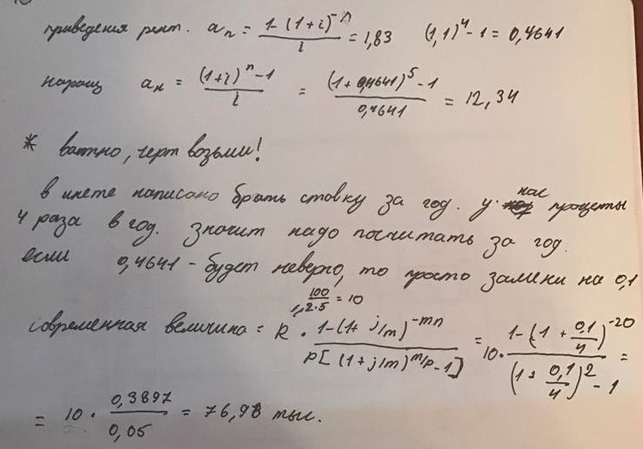 приведения рент. aₙ = (1-(1+i)⁻ⁿ)/i = 1,83 (1,1)⁴-1 = 0,4641
наращ aₙ = ((1+i)ⁿ-1)/i = ((1+0,4641)⁵-1)/0,4641 = 12,34
* важно, черт возьми!
в инете написано брать ставку за год. у нас проценты
4 раза в год. значит надо посчитать за год.
если 0,4641 - будет неверго, то просто замени на 0,1
100/(1,2·5) = 10
современная величина = R · (1-(1+j/m)⁻ᵐⁿ)/(p[(1+j/m)^(m/p)-1]) = 10 · (1-(1+0,1/4)⁻²⁰)/((1+0,1/4)²-1) =
= 10 · 0,3897/0,05 = 76,98 тыс.